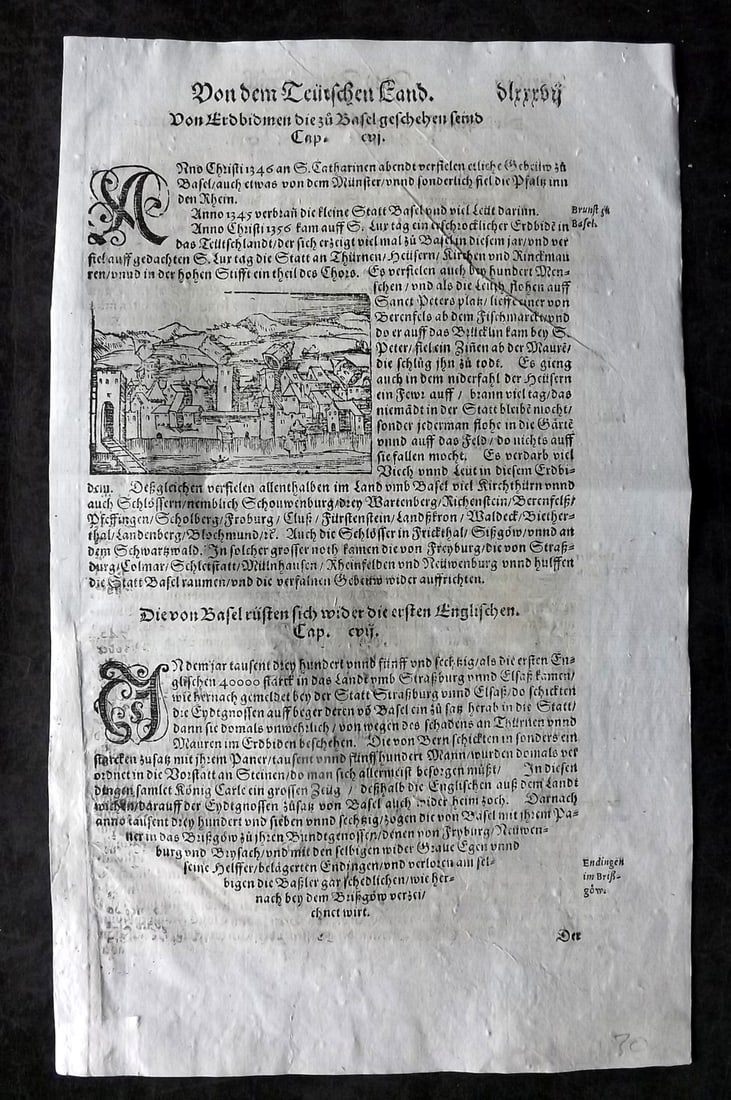 Von dem Teütschen Land. dlxxxvij
Von Erdbidmen die zů Basel geschehen seind
Cap. cvj.
ANno Christi 1346 an S. Catharinen abendt verfielen etliche Gebeüw zů
Basel/auch etwas von dem Münster/vnnd sonderlich fiel die Pfaltz inn
den Rhein.
Anno 1345 verbran̄ die kleine Statt Basel vnd viel Leüt darinn.
Brunst zů
Basel.
Anno Christi 1356 kam auff S. Lux tag ein erschrocklicher Erdbidē in
das Teütschlandt/der sich erzeigt viel mal zů Basel in diesem jar/vnd ver
fiel auff gedachten S. Lux tag die Statt an Thürnen/Heüsern/Kirchen vnd Rinckmau
ren/vnnd in der hohen Stifft ein theil des Chors. Es verfielen auch bey hundert Men-
schen/vnd als die Leüth flohen auff
Sanct Peters platz/lieffe einer von
Berenfels ab dem Fischmarckt/vnnd
do er auff das Brücklin kam bey S.
Peter/fiel ein Zin̄en ab der Maurē/
die schlůg jhn zů todt. Es gieng
auch in dem niderfahl der Heüsern
ein Fewr auff/brann viel tag/das
niemādt in der Statt bleibē mocht/
sonder jederman flohe in die Gärtē
vnnd auff das Feld/do nichts auff
sie fallen mocht. Es verdarb viel
Viech vnnd Leüt in diesem Erdbi-
dem. Deßgleichen verfielen allenthalben im Land vmb Basel viel Kirchthürn vnnd
auch Schlössern/nemblich Schouwenburg/drey Wartenberg/Richenstein/Berenfelß/
Pfeffingen/Scholberg/Froburg/Cluß/Fürstenstein/Landßkron/Waldeck/Biether-
thal/Landenberg/Blochmund/ꝛc. Auch die Schlösser in Frickthal/Sißgöw/vnnd an
dem Schwartzwald. In solcher grosser noth kamen die von Freyburg/die von Straß-
burg/Colmar/Schletstatt/Mülnhausen/Rheinfelden vnd Neüwenburg vnnd hulffen
die Statt Basel raumen/vnd die verfalnen Gebeüw wider auffrichten.
Die von Basel rüsten sich wider die ersten Englischen.
Cap. cvij.
IN dem jar tausent drey hundert vnnd fünff vnd sechtzig/als die ersten En-
glischen 40000 starck in das Landt vmb Straßburg vnnd Elsaß kamen/
wie hernach gemeldet bey der Statt Straßburg vnnd Elsaß/do schickten
die Eydtgnossen auff beger deren vō Basel ein zůsatz herab in die Statt/
dann sie domals vnwehrlich/von wegen des schadens an Thürnen vnnd
Mauren im Erdbiden beschehen. Die von Bern schickten in sonders ein
starcken zůsatz mit jhrem Paner/tausent vnnd fünffhundert Mann/wurden domals ver
ordnet in die Vorstatt an Steinen/do man sich allermeist besorgen müßt/ In diesen
dingen samlet König Carle ein grossen Zeüg/deßhalb die Englischen auß dem Landt
wichen/darauff der Eydtgnossen zůsatz von Basel auch wider heim zoch. Darnach
anno tausent drey hundert vnd sieben vnnd sechtzig/zogen die von Basel mit jhrem Pa-
ner in das Brißgöw zů jhren Bundtgenossen/denen von Fryburg/Neüwen-
burg vnd Brysach/vnd mit den selbigen wider Graue Egen vnnd
seine Helffer/belägerten Endingen/vnd verloren am sel-
Endingen
im Briß-
göw.
bigen die Baßler gar schedlichen/wie her-
nach bey dem Brißgöw verzei-
chnet wirt.
Der